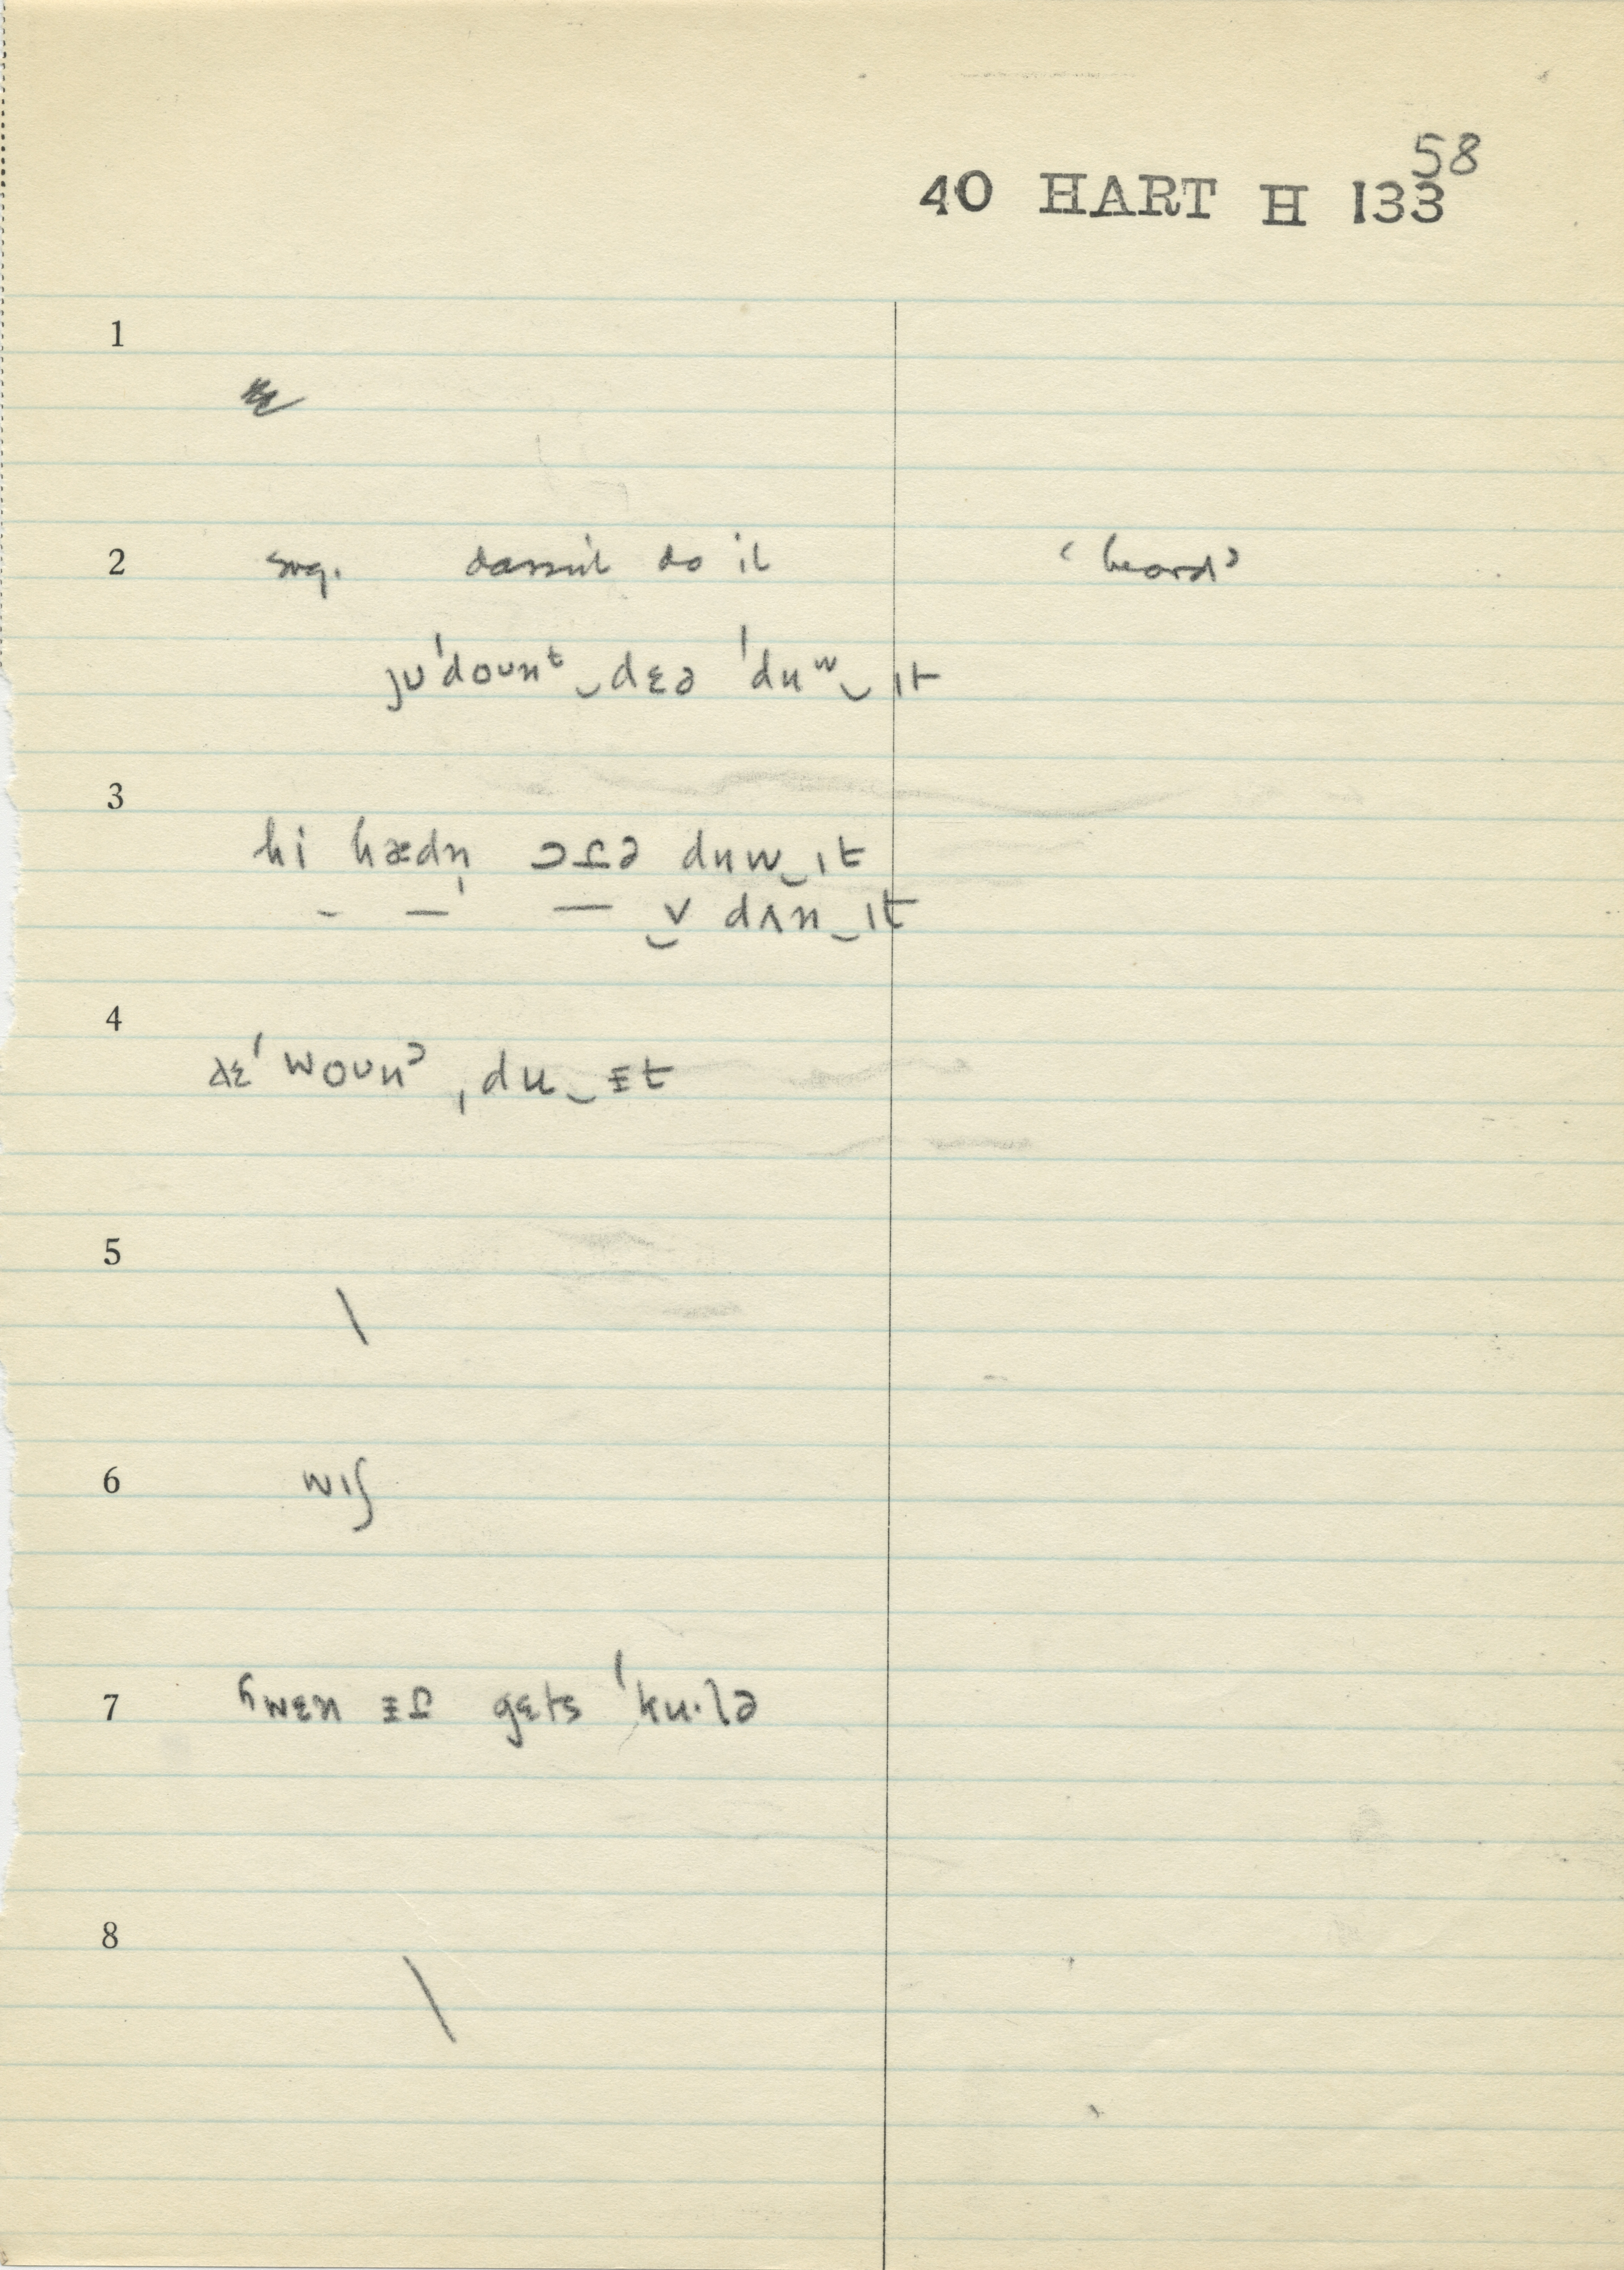 58
40 HART H 133
1
2 sug. dassn't do it ‘heard’
jʊˈdoʊnᵗ‿dɛə ˈduʷ‿ɪt
3
hi hædn̩ ɔɾə duw‿ɪt
- — — ‿v dʌn‿ɪt
4
ðɛˈwoʊnˀ ˌdu‿ᵻt
5
\
6 wɪʃ
7 ʰwɛn ᵻɾ gɛts ˈku·lə
8
\